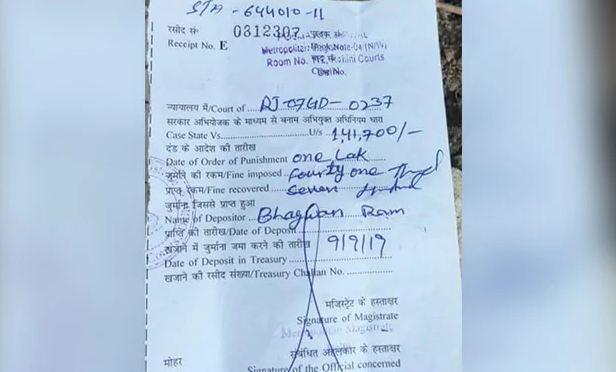 STA - 644010-11
रसीद सं॰
Receipt No. E 0312307
Metropolitan Magistrate-04 (N/W)
Room No. Rohini Courts
न्यायालय में/Court of RJ-07GD-0237
सरकार अभियोजक के माध्यम से बनाम अभियुक्त अधिनियम धारा
Case State Vs. U/s 1,41,700/-
दंड के आदेश की तारीख
Date of Order of Punishment one Lak
जुर्माने की रकम/Fine imposed Fourty one
प्राप्त रकम/Fine recovered Seven
जुर्माना जिससे प्राप्त हुआ
Name of Depositor Bhagwan Ram
प्राप्ति की तारीख/Date of Deposit
खजाने में जुर्माना जमा करने की तारीख 9/9/19
Date of Deposit in Treasury
खजाने की रसीद संख्या/Treasury Challan No.
मजिस्ट्रेट के हस्ताक्षर
Signature of Magistrate
Metropolitan Magistrate
मोहर संबंधित अहलकार के हस्ताक्षर
Signature of the Official concerned